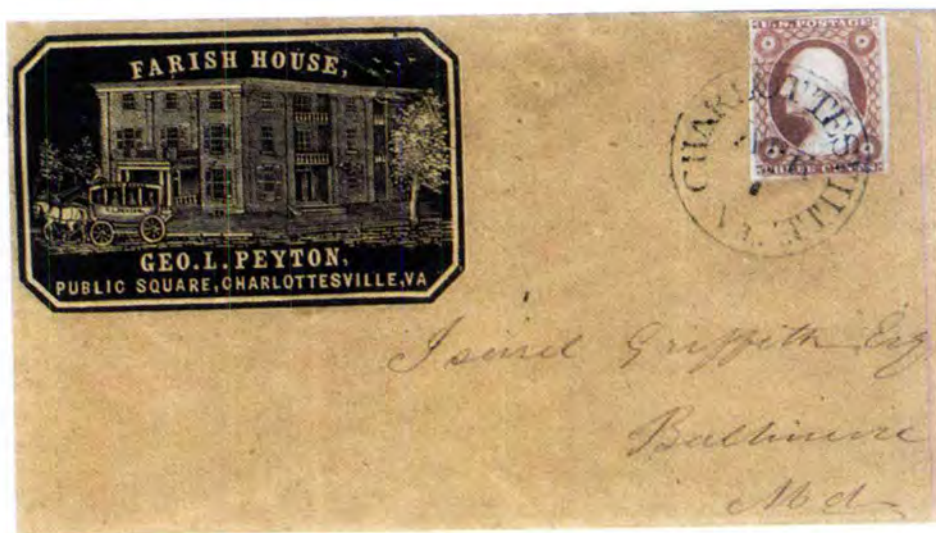 FARISH HOUSE,
GEO. L. PEYTON,
PUBLIC SQUARE, CHARLOTTESVILLE, VA
U.S. POSTAGE
THREE CENTS
CHARLOTTESVILLE VA.
Griffith Esq
Baltimore
Md